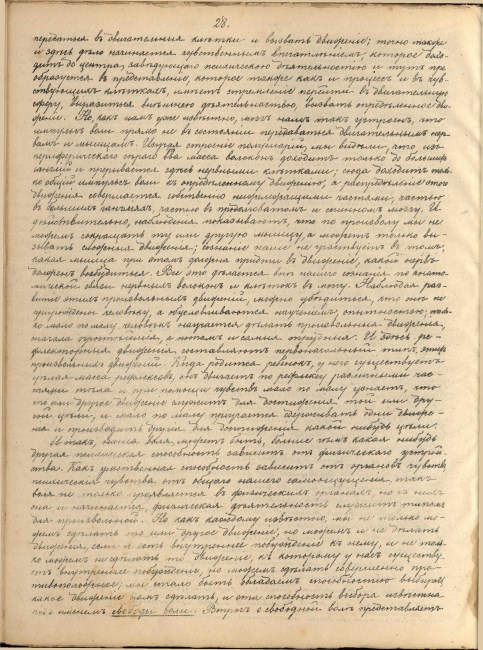 28.
передаться въ двигательныя клѣтки и вызвать движеніе; точно также
и здѣсь дѣло начинается чувственнымъ впечатлѣніемъ, которое дохо-
дитъ до центра, завѣдующаго психическою дѣятельностью и тутъ пре-
образуется въ представленіе, которое также какъ и процессъ и въ чув-
ствующихъ клѣткахъ, имѣетъ стремленіе перейти въ двигательную
сферу, выразиться внѣшнею дѣятельностью, вызвать опредѣленное дви-
женіе. Но, какъ намъ уже извѣстно, мозгъ нашъ такъ устроенъ, что
импульсъ воли прямо не въ состояніи передаваться двигательнымъ нер-
вамъ и мышцамъ. Изучая строеніе полушарій, мы видѣли, что изъ
периферическаго сѣраго вся масса волоконъ доходитъ только до большихъ
ганглій и прерывается здѣсь нервными клѣтками; сюда доходитъ толь-
ко общій импульсъ воли къ опредѣленному движенію, а распредѣленіе этого
движенія совершается собственно нижележащими частями, частью
въ большихъ гангліяхъ, частью въ продолговатомъ и спинномъ мозгу. И
дѣйствительно, наблюденія показываютъ, что по произволу мы не
можемъ сокращать ту или другую мышцу, а можемъ только вы-
зывать сложныя движенія; сознаніе наше не участвуетъ въ томъ,
какая мышца при этомъ должна придти въ движеніе, какой нервъ
долженъ возбудиться. Все это дѣлается внѣ нашего сознанія по анато-
мической связи нервныхъ волоконъ и клѣтокъ въ мозгу. Наблюдая раз-
витіе этихъ произвольныхъ движеній, можно убѣдиться, что онѣ не
прирождены человѣку, а обусловливаются наученіемъ, опытностью; толь-
ко мало по малу, человѣкъ научается дѣлать произвольныя движенія,
сначала простѣйшія, а потомъ и самыя трудныя. И здѣсь ре-
флекторныя движенія составляютъ первоначальный типъ этихъ
произвольныхъ движеній. Когда родится ребенокъ, у него существуетъ
цѣлая масса рефлексовъ, онъ двигаетъ по рефлексу различными час-
тями тѣла и при помощи чувствъ мало по малу узнаетъ, что
то или другое движеніе служитъ для достиженія той или дру-
гой цѣли, и мало по малу пріучается сдерживать одни движе-
нія и производить другія для достиженія какой нибудь цѣли.
И такъ, наша воля, можетъ быть, больше чѣмъ какая нибудь
другая психическая способность зависитъ отъ физическаго устрой-
ства. Какъ умственная способность зависитъ отъ органовъ чувствъ,
психическія чувства отъ общаго нашего самоощущенія, такъ
воля не только проявляется въ физическихъ органахъ, но въ нихъ
она и начинается, физическая дѣятельность служитъ типомъ
для произвольной. Но какъ каждому извѣстно, мы не только мо-
жемъ сдѣлать то или другое движеніе, но можемъ и не дѣлать
движенія, если и есть внутреннее побужденіе къ нему, и не толь-
ко можемъ не сдѣлать то движеніе, къ которому у насъ существу-
етъ внутреннее побужденіе, но можемъ сдѣлать совершенно про-
тивоположное; мы стало быть обладаемъ способностью выбирать,
какое движеніе намъ сдѣлать, и эта способность выбора извѣстна
подъ именемъ свободы воли. Вопросъ о свободной волѣ представляетъ